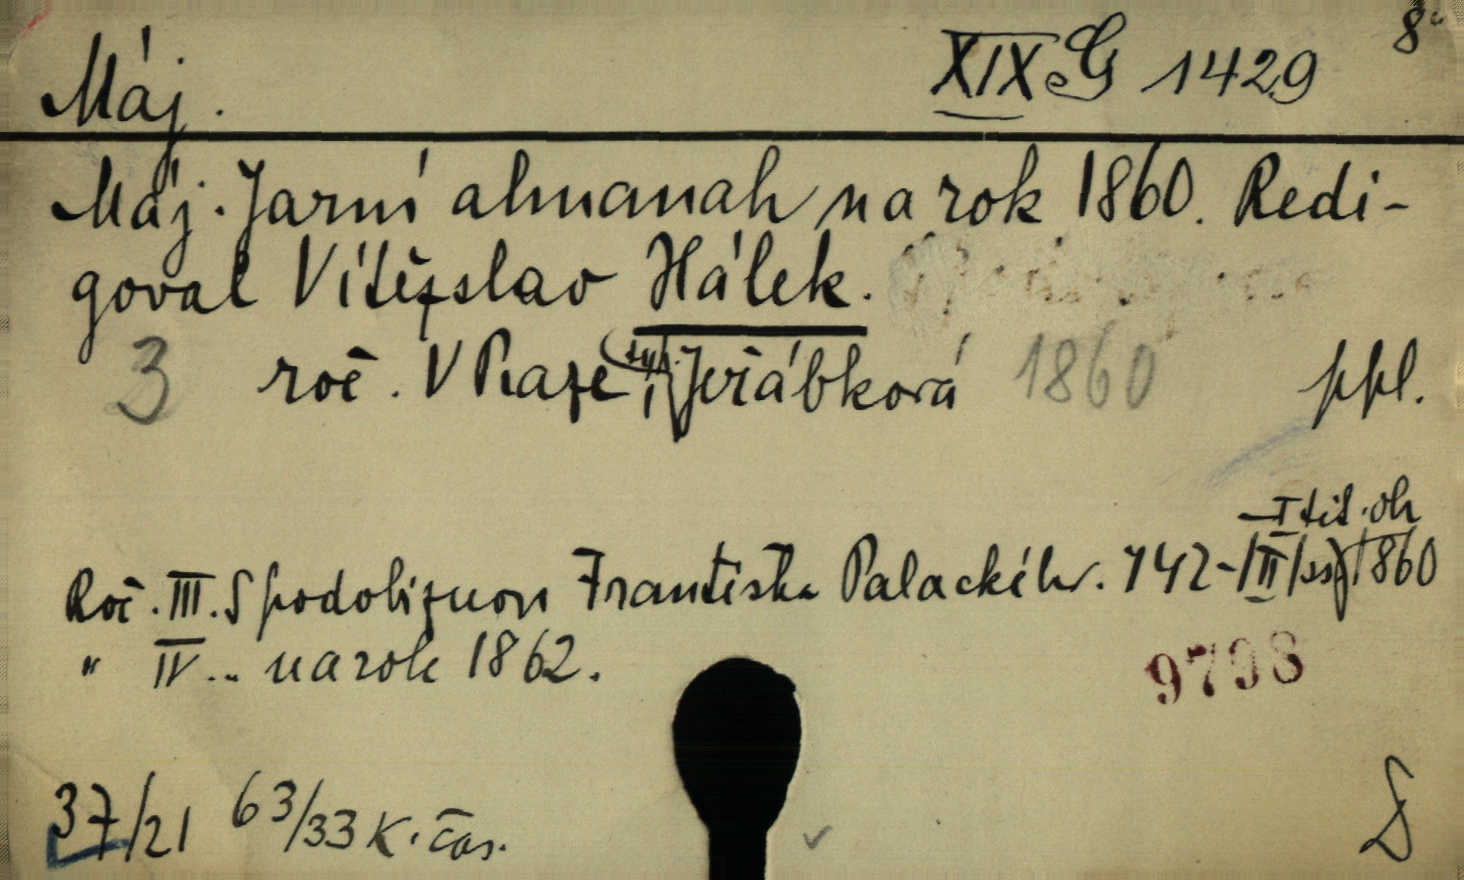 Máj. XIX G 1429 8°
Máj. Jarní almanah na rok 1860. Redi-
goval Vítězslav Hálek.
3 roč. V Praze, typ. Jeřábková 1860 ppl.
I tit. ob
Roč. III. S podobiznou Františka Palackého. 142-/II/ 1860
" IV.. na rok 1862.
9798
37/21 63/33 K. čas.